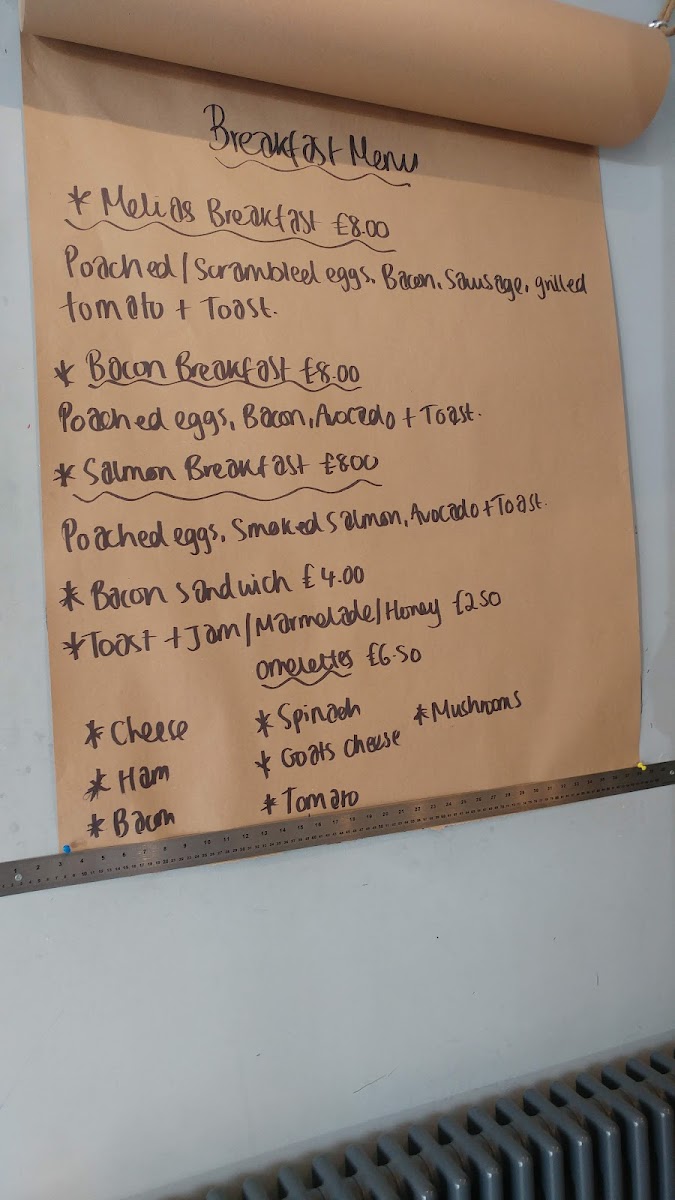 Breakfast Menu
* Melias Breakfast £8.00
Poached/Scrambled eggs, Bacon, Sausage, grilled
tomato + Toast.
* Bacon Breakfast £8.00
Poached eggs, Bacon, Avocado + Toast.
* Salmon Breakfast £800
Poached eggs, Smoked Salmon, Avocado + Toast.
* Bacon sandwich £4.00
* Toast + Jam/Marmelade/Honey £250
omelettes £6.50
* Cheese * Spinach * Mushrooms
* Ham * Goats cheese
* Bacon * Tomato